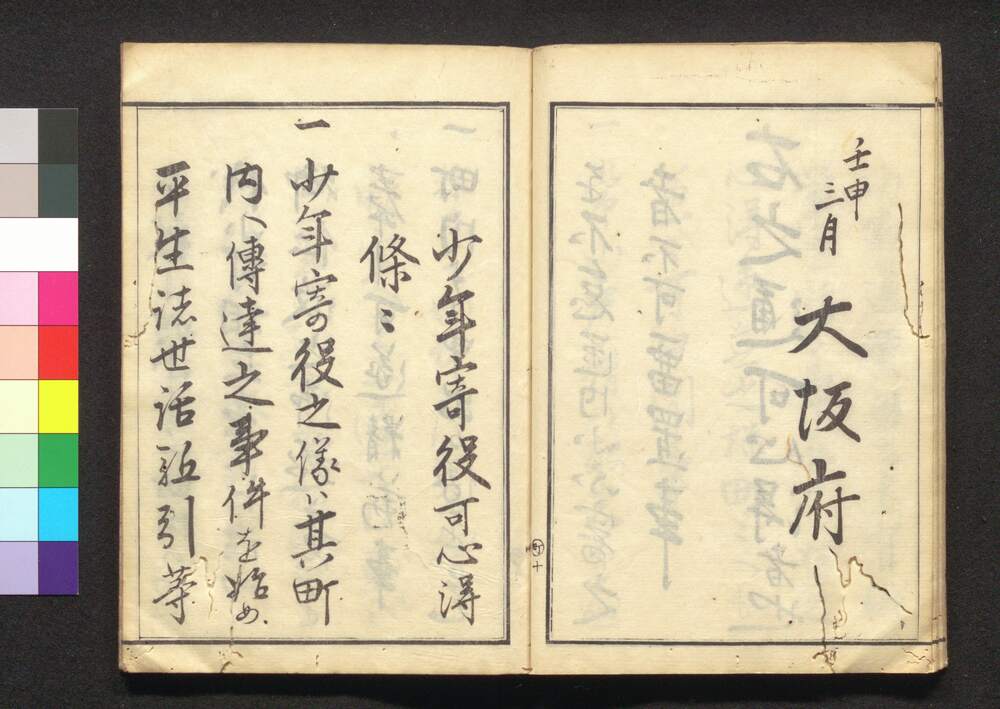 壬申
三月
大坂府
少年寄役可心得
條〻
一 少年寄役之儀ハ其町
内ヘ傳達之事件を始め
平生諸世話駈引等
町
十